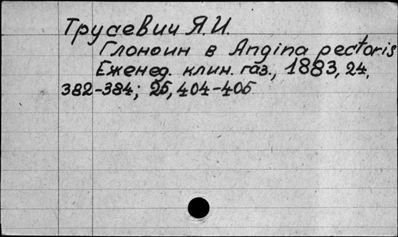 Трусевич Я.И.
Глоноин в Angina pectoris
Еженед. клин. газ., 1883, 24,
382-384; 25, 404-406.